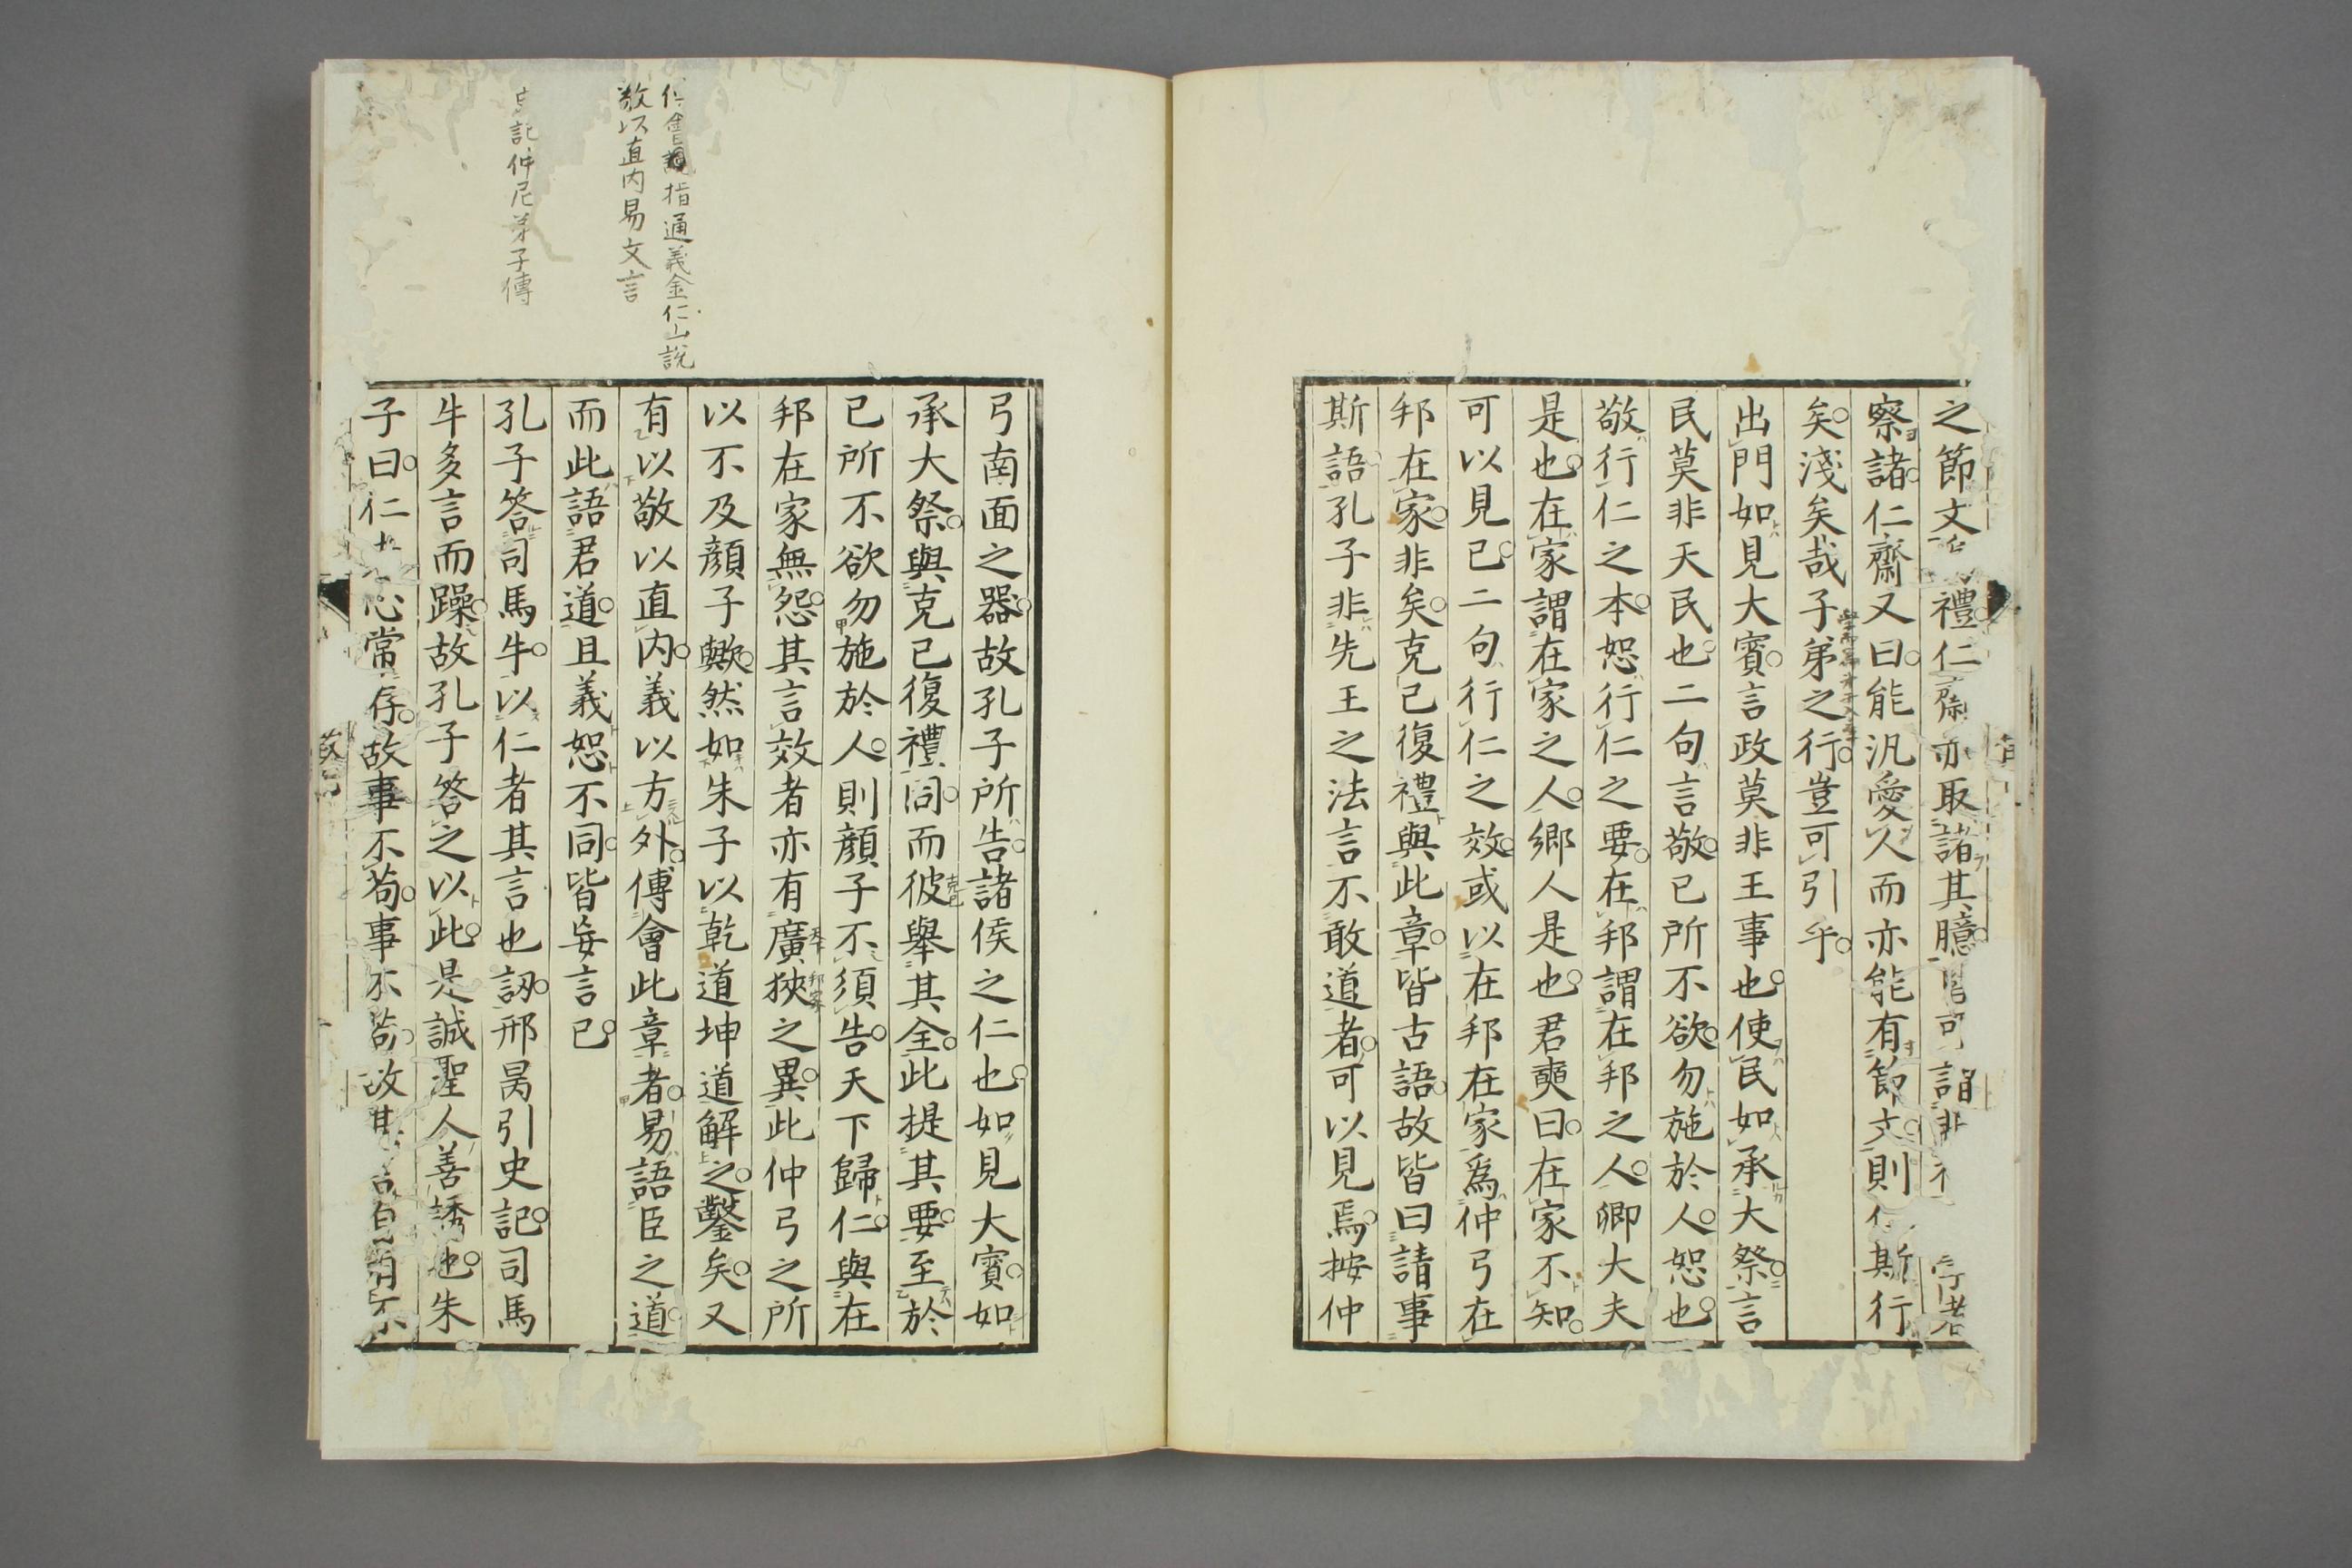 之節文 禮仁齋亦取諸其臆 可謂非
察諸仁齋又曰能汎愛人而亦能有節文則 斯行
矣淺矣哉子弟之行豈可引乎
出門如見大賓言政莫非王事也使民如承大祭言
民莫非天民也二句言敬已所不欲勿施於人恕也
敬行仁之本恕行仁之要在邦謂在邦之人卿大夫
是也在家謂在家之人鄉人是也君奭曰在家不知
可以見已二句行仁之效或以在邦在家爲仲弓在
邦在家非矣克已復禮與此章皆古語故皆曰請事
斯語孔子非先王之法言不敢道者可以見焉按仲
弓南面之器故孔子所告諸侯之仁也如見大賓如
承大祭與克已復禮同而彼舉其全此提其要至於
克己
已所不欲勿施於人則顏子不須告天下歸仁與在
邦在家無怨其言效者亦有廣狹之異此仲弓之所
天下 邦家
以不及顏子歟然如朱子以乾道坤道解之鑿矣又
有以敬以直内義以方外傅會此章者易語臣之道
而此語君道且義恕不同皆妄言已
孔子答司馬牛以仁者其言也訒邢昺引史記司馬
牛多言而躁故孔子答之以此是誠聖人善誘也朱
子曰仁 心常存故事不苟事不苟故其言自有不
會 指通義金仁山說
敬以直内易文言
記仲尼弟子傳